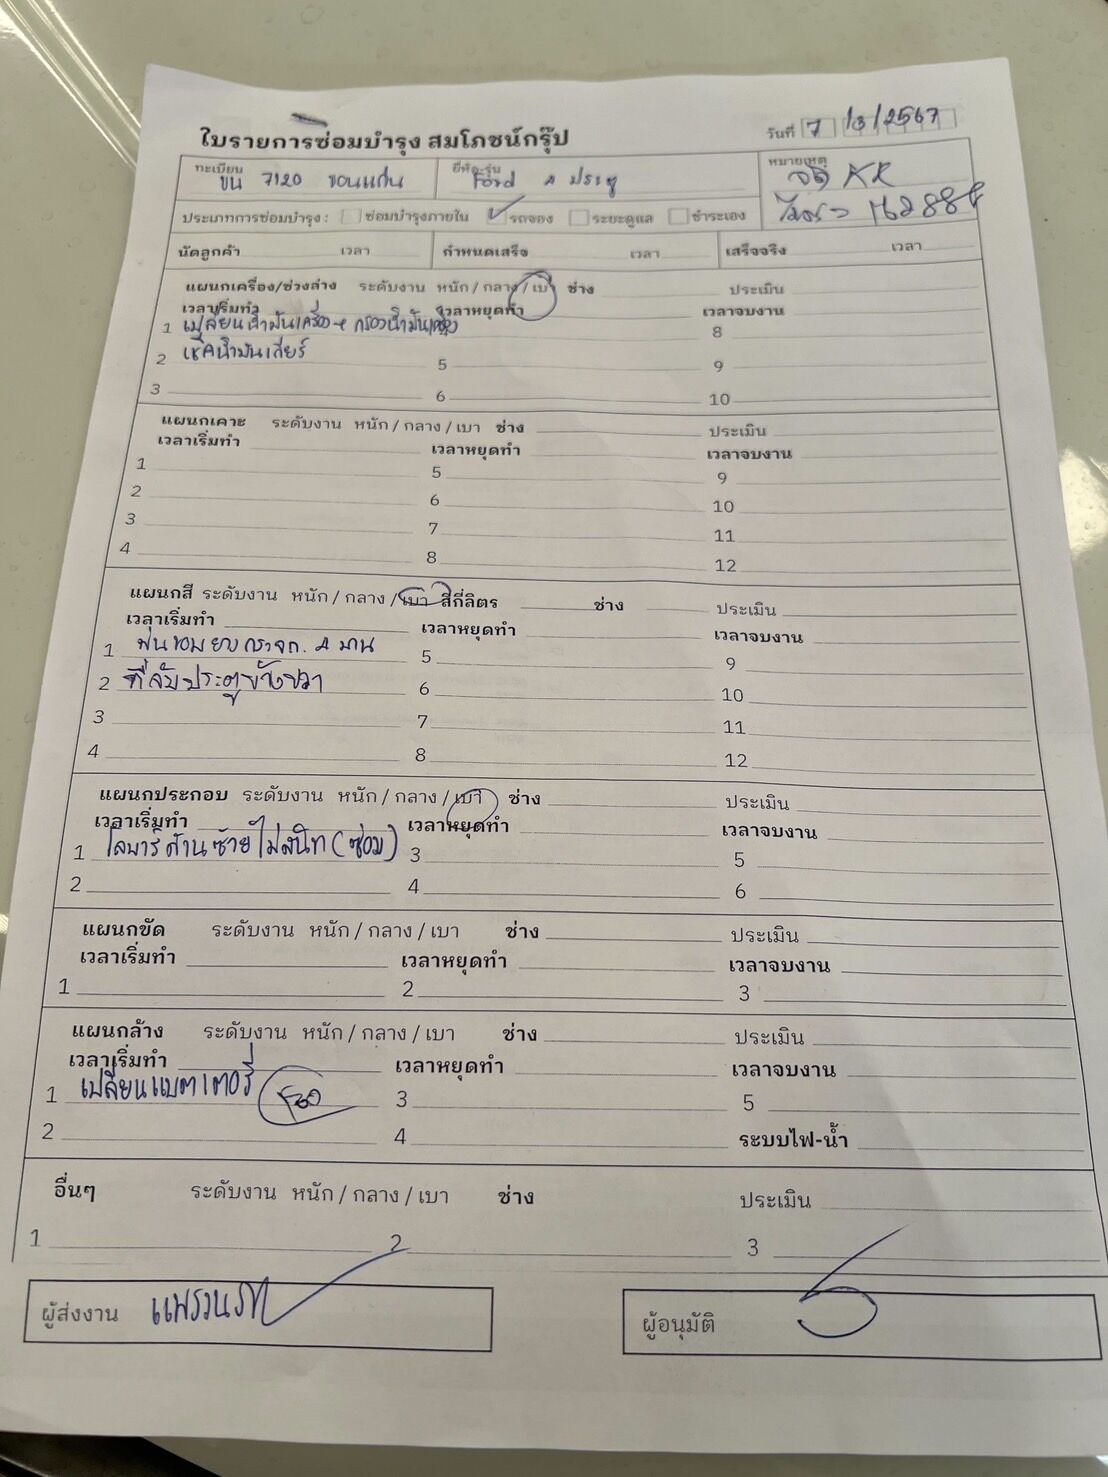 ใบรายการซ่อมบำรุง สมโภชน์กรุ๊ป
วันที่ 7/3/2567
ทะเบียน ขน 7120 ขอนแก่น ยี่ห้อ-รุ่น Ford 4 ประตู หมายเหตุ
ประเภทการซ่อมบำรุง : ซ่อมบำรุงภายใน รถจอง ระยะดูแล ชำระเอง
นัดลูกค้า เวลา กำหนดเสร็จ เวลา เสร็จจริง เวลา
แผนกเครื่อง/ช่วงล่าง ระดับงาน หนัก / กลาง / เบา ช่าง ประเมิน
เวลาเริ่มทำ เวลาหยุดทำ เวลาจบงาน
1 เปลี่ยนน้ำมันเครื่อง + กรองน้ำมันเครื่อง 8
2 เช็คน้ำมันเกียร์ 5 9
3 6 10
แผนกเคาะ ระดับงาน หนัก / กลาง / เบา ช่าง ประเมิน
เวลาเริ่มทำ เวลาหยุดทำ เวลาจบงาน
1 5 9
2 6 10
3 7 11
4 8 12
แผนกสี ระดับงาน หนัก / กลาง / เบา สีกี่ลิตร ช่าง ประเมิน
เวลาเริ่มทำ เวลาหยุดทำ เวลาจบงาน
1 พ่นขอบยางกระจก 4 บาน 5 9
2 ที่จับประตูข้างขวา 6 10
3 7 11
4 8 12
แผนกประกอบ ระดับงาน หนัก / กลาง / เบา ช่าง ประเมิน
เวลาเริ่มทำ เวลาหยุดทำ เวลาจบงาน
1 โลบาร์ด้านซ้ายไม่สนิท (ซ่อม) 3 5
2 4 6
แผนกขัด ระดับงาน หนัก / กลาง / เบา ช่าง ประเมิน
เวลาเริ่มทำ เวลาหยุดทำ เวลาจบงาน
1 2 3
แผนกล้าง ระดับงาน หนัก / กลาง / เบา ช่าง ประเมิน
เวลาเริ่มทำ เวลาหยุดทำ เวลาจบงาน
1 เปลี่ยนแบตเตอรี่ 3 5
2 4 ระบบไฟ-น้ำ
อื่นๆ ระดับงาน หนัก / กลาง / เบา ช่าง ประเมิน
1 2 3
ผู้ส่งงาน ผู้อนุมัติ